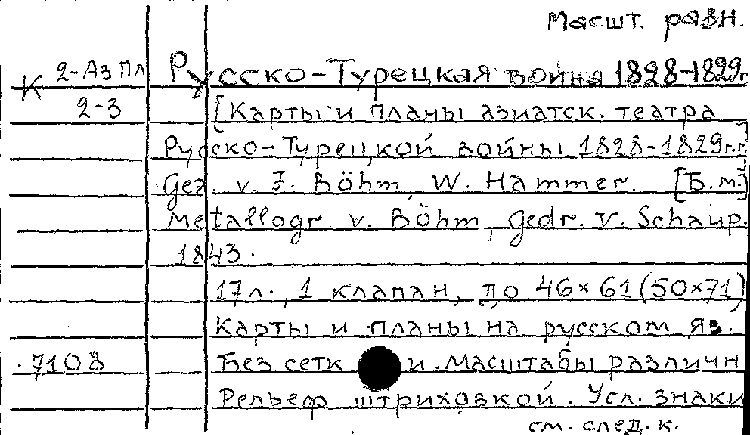 Масшт. разн.
К 2-Аз Пл
2-3
Русско-Турецкая война 1828-1829г.
[Карты и планы азиатск. театра
Русско-Турецкой войны 1828-1829г.г.]
Gez. v. J. Böhm, W. Hammer. [Б.м.]
Metallogr v. Böhm, gedr. v. Schaup.
1843.
17л., 1 клапан, до 46×61 (50×71)
Карты и планы на русском яз.
7108
Без сетк и. Масштабы различн
Рельеф штриховкой. Усл. знаки
см. след. к.